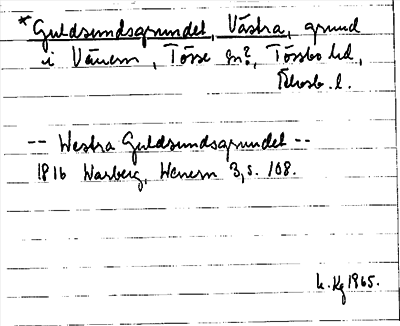 *Guldsundsgrundet, Västra, grund
i Vänern, Tösse sn?, Tössbo hd,
Älvsb. l.
-- Westra Guldsundsgrundet --
1816 Warberg, Wenern 3, s. 108.
k. Kg 1965.